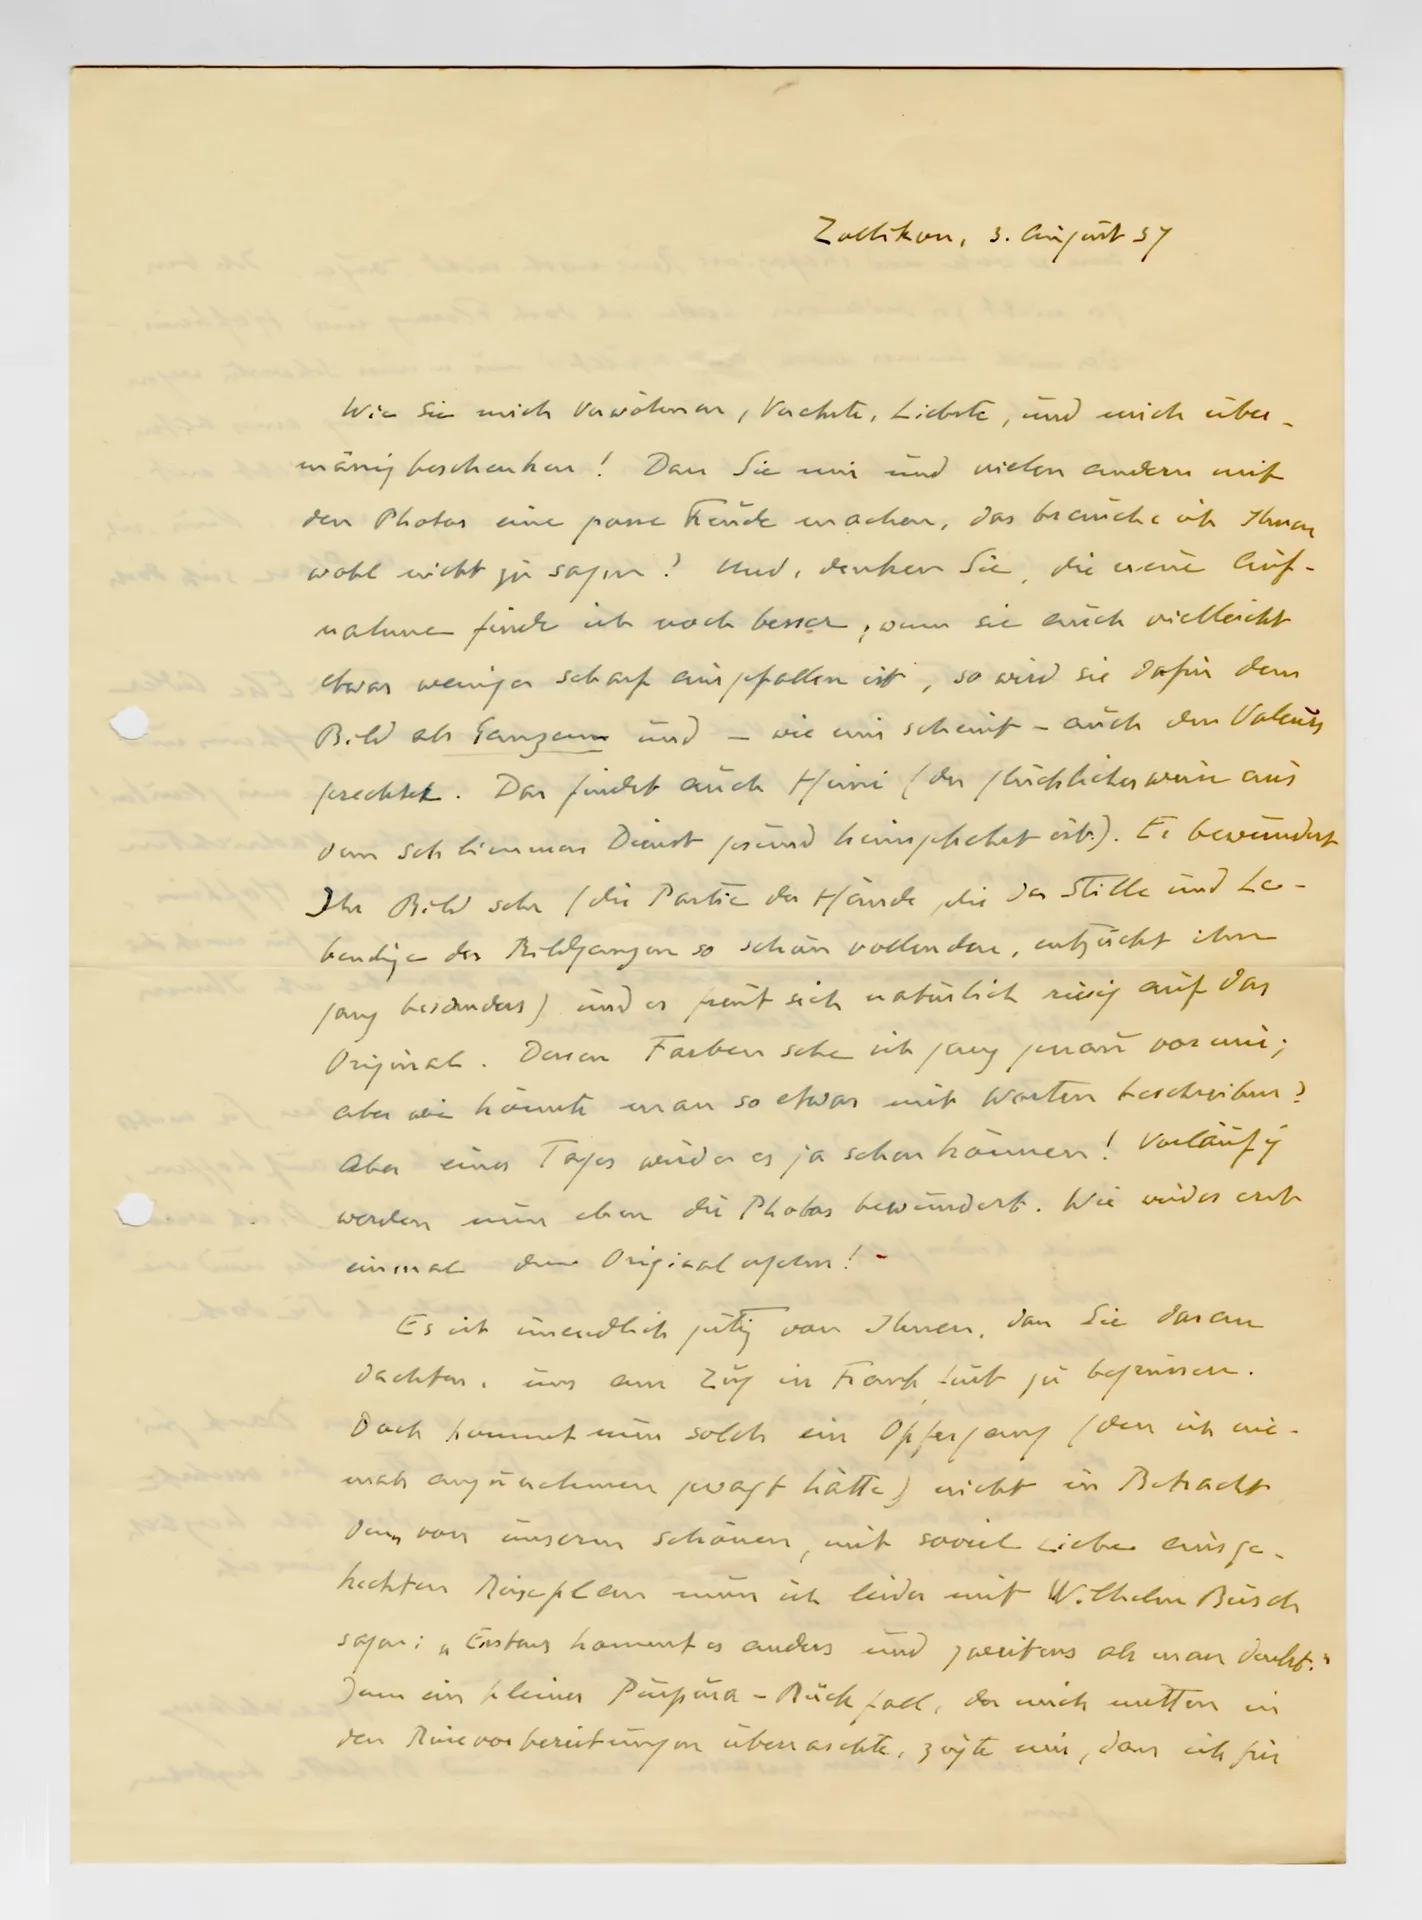 Zollikon, 3. August 57
Wie Sie mich verwöhnen, Verehrte, Liebste, und mich über-
mässig beschenken! Dass Sie mir und vielen andern mit
den Photos eine grosse Freude machen, das brauche ich Ihnen
wohl nicht zu sagen? Und, denken Sie, die neue Auf-
nahme finde ich noch besser, wenn sie auch vielleicht
etwas weniger scharf ausgefallen ist, so wird sie dafür dem
Bild als Ganzem und – wie mir scheint – auch den Valeurs
gerechter. Das findet auch Heini (der glücklicherweise aus
dem schlimmen Dienst gesund heimgekehrt ist.). Er bewundert
Ihr Bild sehr (die Partie der Hände, die das Stille und Le-
bendige des Bildganzen so schön vollenden, entzückt ihn
ganz besonders) und er freut sich natürlich riesig auf das
Original. Dessen Farben sehe ich ganz genau vor mir;
aber wie könnte man so etwas mit Worten beschreiben?
Aber eines Tages wird er es ja sehen können! Vorläufig
werden nun eben die Photos bewundert. Wie wird es erst
einmal dem Original ergehn! -
Es ist unendlich gütig von Ihnen, dass Sie daran
dachten, uns am Zug in Frankfurt zu begrüssen.
Doch kommt nun solch ein Opfergang (den ich nie-
mals anzunehmen gewagt hätte) nicht in Betracht
denn von unserm schönen, mit soviel Liebe ausge-
heckten Reiseplan muss ich leider mit Wilhelm Busch
sagen: „Erstens kommt es anders und zweitens als man denkt."
Denn ein kleiner Purpura-Rückfall, der mich mitten in
den Reisevorbereitungen überraschte, zeigte mir, dass ich für